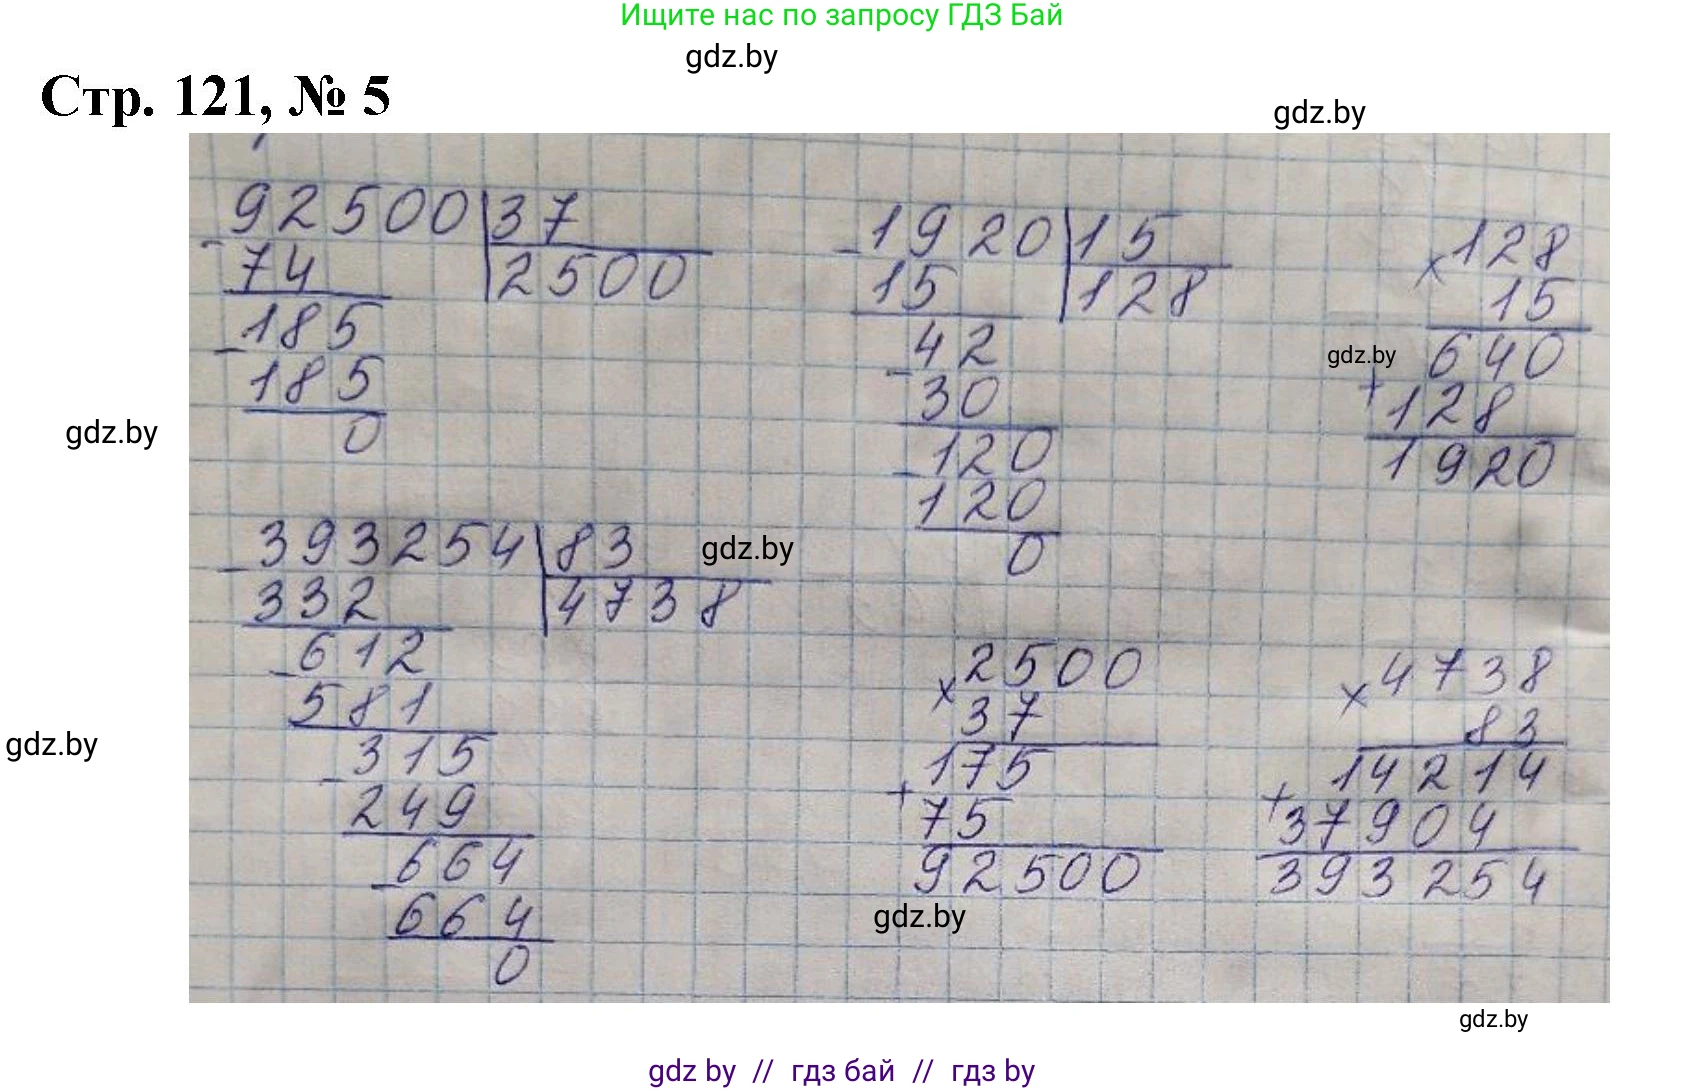 Ищите нас по запросу ГДЗ Бай
gdz.by
Стр. 121, № 5
gdz.by
92500 37
- 74 2500
185
- 185
0
- 1920 15
15 128
42
- 30
120
- 120
0
× 128
15
gdz.by
640
+ 128
1920
gdz.by
- 393254 83
332 4738
gdz.by
- 612
581
- 315
249
- 664
664
0
× 2500
37
175
+ 75
92500
× 4738
83
14214
+ 37904
393254
gdz.by
gdz.by
gdz.by
gdz by // гдз бай // гдз by